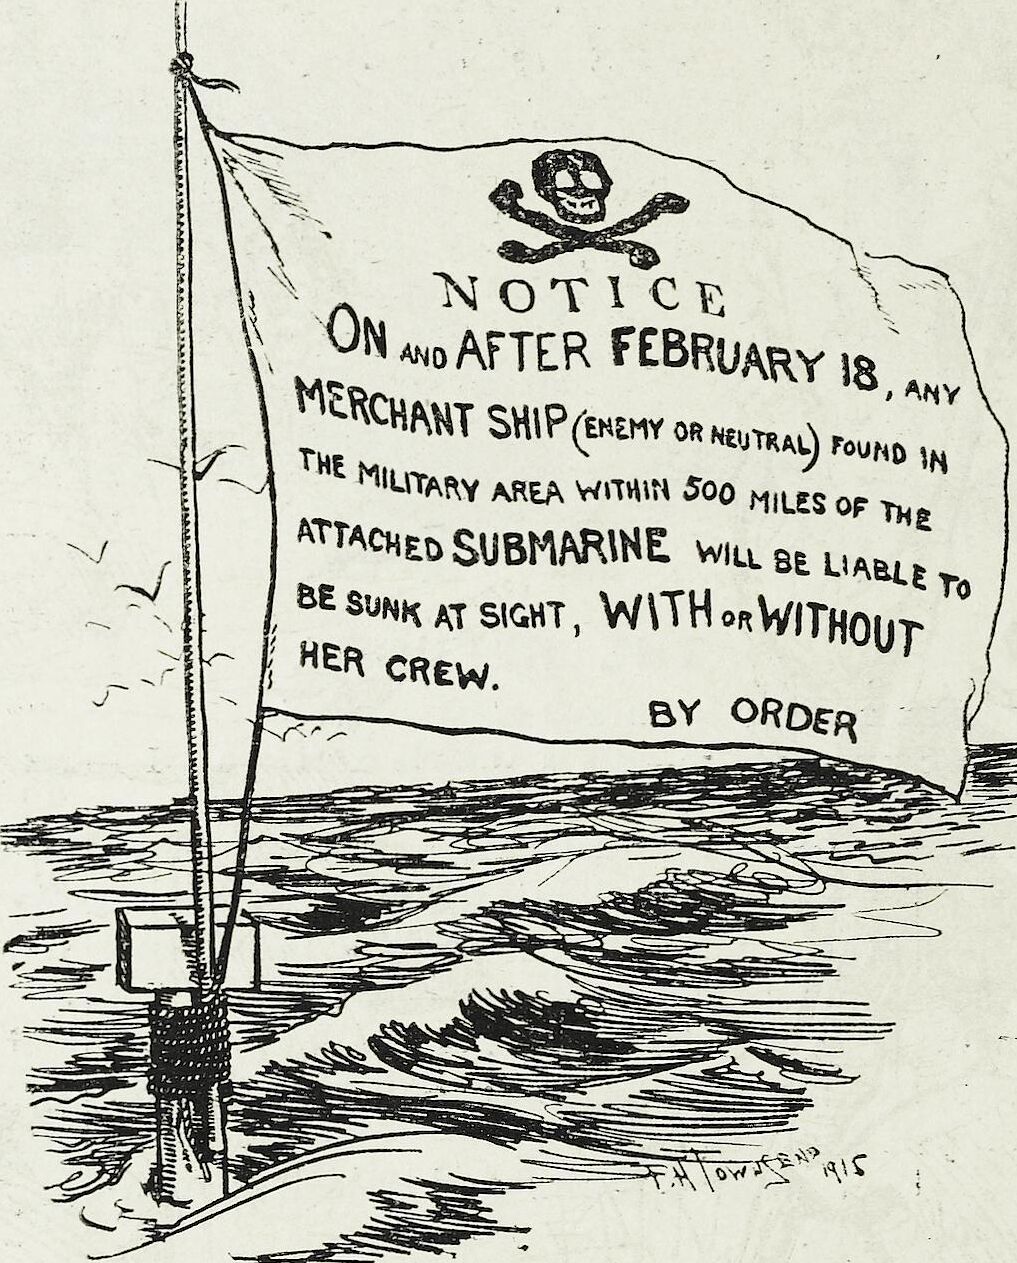 NOTICE
ON AND AFTER FEBRUARY 18, ANY
MERCHANT SHIP (ENEMY OR NEUTRAL) FOUND IN
THE MILITARY AREA WITHIN 500 MILES OF THE
ATTACHED SUBMARINE WILL BE LIABLE TO
BE SUNK AT SIGHT, WITH OR WITHOUT
HER CREW.
BY ORDER
F. H. TOWNSEND 1915